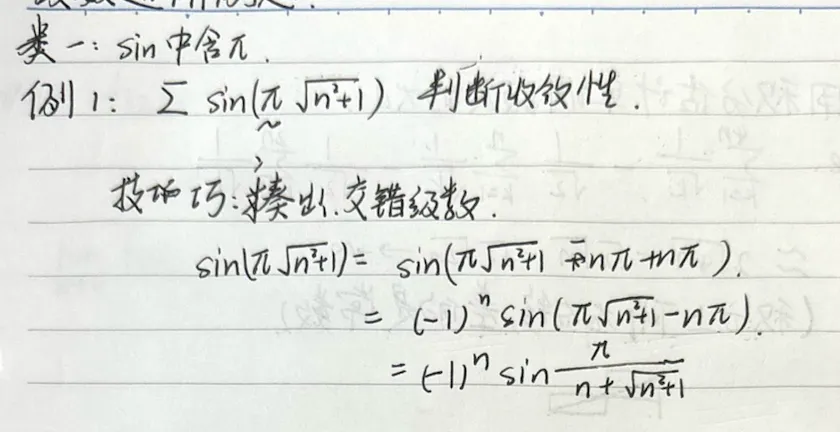 类一: sin中含π.
例1: Σ sin(π √n²+1) 判断收敛性.
技巧: 凑出交错级数.
sin(π√n²+1) = sin(π√n²+1 -nπ+nπ).
= (-1)ⁿ sin(π√n²+1-nπ)
= (-1)ⁿ sin π/(n+√n²+1)